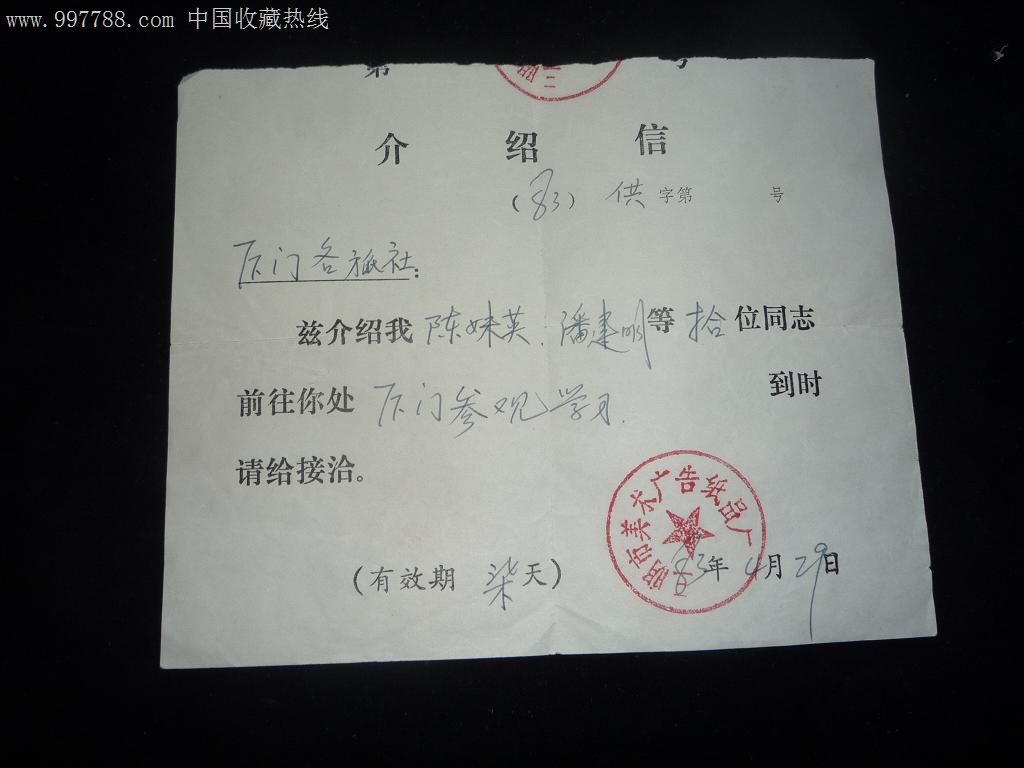 www.997788.com 中国收藏热线
第 号
三明
介绍信
(83) 供字第 号
厦门各旅社:
兹介绍我 陈妹英、潘建明 等 拾 位同志
前往你处 厦门参观学习. 到时
请给接洽。
三明市美术广告纸品厂
(有效期 柒 天) 83年 4月 29日